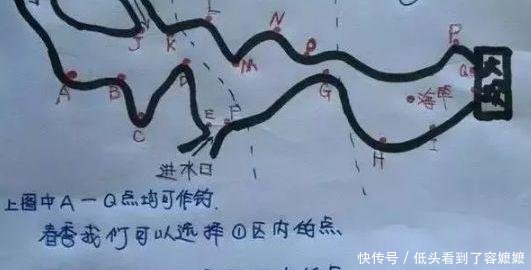 L
N
J
K
M
O
P
A
B
D
G
Q
大坝
C
E
F
H
I
进水口
上图中A—Q点均可作钓.
春季我们可以选择①区内的点
快传号 / 低头看到了容嬷嬷